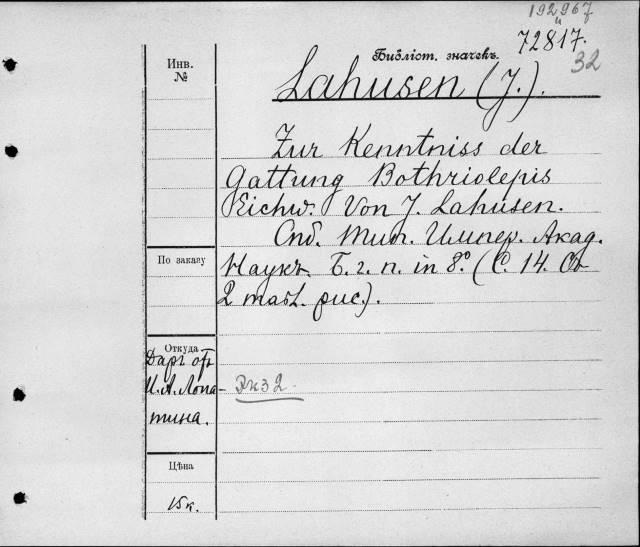 192967
"
72817.
Библіот. значекъ.
32
Инв.
№
Lahusen (J.).
Zur Kenntniss der
Gattung Bothriolepis
Eichw. Von J. Lahusen.
Спб. Тип. Импер. Акад.
По заказу
Наукъ. Б. г. п. in 8º. (С. 14. Съ
2 табл. рис.).
Откуда
Даръ отъ
И. А. Лопа-
тина.
Экз 2.
Цѣна
15 к.